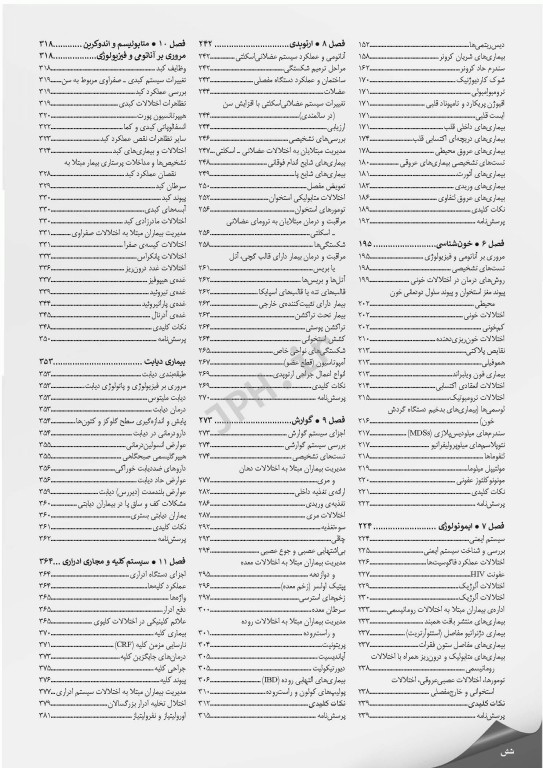 دیس‌ریتمی‌ها ۱۵۲
بیماری‌های شریان کرونر ۱۵۸
سندرم حاد کرونر ۱۶۲
شوک کاردیوژنیک ۱۷۰
ترومبوآمبولی ۱۷۱
افیوژن پریکارد و تامپوناد قلبی ۱۷۱
ایست قلبی ۱۷۱
بیماری‌های داخلی قلب ۱۷۱
بیماری‌های دریچه‌ای اکتسابی قلب ۱۷۴
بیماری‌های عروق محیطی ۱۷۸
تست‌های تشخیصی بیماری‌های عروقی ۱۸۰
بیماری‌های آئورت ۱۸۱
بیماری‌های وریدی ۱۸۳
بیماری‌های عروق لنفاوی ۱۸۶
نکات کلیدی ۱۸۹
پرسش‌نامه ۱۹۲
فصل ۶ • خون‌شناسی ۱۹۵
مروری بر آناتومی و فیزیولوژی ۱۹۵
تست‌های تشخیصی ۱۹۸
روش‌های درمان در اختلالات خونی ۱۹۹
پیوند مغز استخوان و پیوند سلول دودمانی خون
محیطی ۲۰۲
اختلالات خونی ۲۰۲
کم‌خونی ۲۰۲
اختلالات خون‌ریزی‌دهنده ۲۱۰
نقایص پلاکتی ۲۱۲
هموفیلی ۲۱۳
بیماری فون ویلبراند ۲۱۳
اختلالات انعقادی اکتسابی ۲۱۴
اختلالات ترومبوتیک ۲۱۵
نئوسمی‌ها (بیماری‌های بدخیم دستگاه گردش
خون) ۲۱۶
سندرم‌های میلودیس‌پلازی (MDSs) ۲۱۷
نئوپلاسم‌های میلوپرولیفراتیو ۲۱۷
لنفوماها ۲۱۸
مولتیپل میلوما ۲۱۹
مونونوکلئوز عفونی ۲۲۰
نکات کلیدی ۲۲۱
پرسش‌نامه ۲۲۲
فصل ۷ • ایمونولوژی ۲۲۴
سیستم ایمنی ۲۲۴
بررسی و شناخت سیستم ایمنی ۲۲۵
اختلالات عملکرد فاگوسیت‌ها ۲۲۶
عفونت HIV ۲۲۷
اختلالات آلرژیک ۲۲۹
اختلالات آلرژیک ۲۳۰
اداره‌ی بیماران مبتلا به اختلالات روماتیسمی ۲۳۳
بیماری‌های منتشر بافت همبند ۲۳۳
بیماری دژنراتیو مفاصل (استئوآرتریت) ۲۳۷
بیماری‌های مفاصل ستون فقرات ۲۳۷
بیماری‌های متابولیک و درون‌ریز همراه با اختلالات
روماتیسمی ۲۳۸
تومورها، اختلالات عصبی‌عروقی، اختلالات
استخوانی و خارج‌مفصلی ۲۳۸
نکات کلیدی ۲۳۹
پرسش‌نامه ۲۳۹
فصل ۸ • ارتوپدی ۲۴۲
آناتومی و عملکرد سیستم عضلانی‌اسکلتی ۲۴۲
مراحل ترمیم شکستگی ۲۴۲
ساختمان و عملکرد دستگاه مفصلی ۲۴۳
عضلات ۲۴۴
تغییرات سیستم عضلانی‌اسکلتی با افزایش سن
(در سالمندی) ۲۴۴
ارزیابی ۲۴۴
بررسی‌های تشخیصی ۲۴۶
مدیریت مبتلایان به اختلالات عضلانی ـ اسکلتی ۲۴۷
بیماری‌های شایع اندام فوقانی ۲۴۸
بیماری‌های شایع پا ۲۴۹
تعویض مفصل ۲۵۰
اختلالات متابولیکی استخوان ۲۵۲
تومورهای استخوان ۲۵۶
مراقبت و درمان مبتلایان به ترومای عضلانی
ـ اسکلتی ۲۵۶
شکستگی‌ها ۲۵۸
مراقبت و درمان بیمار دارای قالب گچی، آتل
یا بریس ۲۶۱
آتل‌ها و بریس‌ها ۲۶۲
قالب‌های تنه یا قالب‌های اسپایکا ۲۶۲
بیمار دارای تثبیت‌کننده‌ی خارجی ۲۶۳
بیمار تحت تراکشن ۲۶۳
تراکشن پوستی ۲۶۴
کشش استخوانی ۲۶۴
شکستگی‌های نواحی خاص ۲۶۵
آمپوتاسیون (قطع عضو) ۲۶۷
انواع اعمال جراحی ارتوپدی ۲۶۹
نکات کلیدی ۲۶۹
پرسش‌نامه ۲۷۰
فصل ۹ • گوارش ۲۷۳
اجزای سیستم گوارش ۲۷۳
بررسی سیستم گوارشی ۲۷۴
تست‌های تشخیصی ۲۷۴
مدیریت بیماران مبتلا به اختلالات دهان
و مری ۲۷۷
ارائه‌ی تغذیه داخلی ۲۸۲
تغذیه‌ی وریدی ۲۸۶
اختلالات مری ۲۸۷
سوءتغذیه ۲۹۲
چاقی ۲۹۳
بی‌اشتهایی عصبی و جوع عصبی ۲۹۴
مدیریت بیماران مبتلا به اختلالات معده
و دوازدهه ۲۹۵
پپتیک اولسر (زخم معده) ۲۹۶
زخم‌های استرسی ۲۹۷
سرطان معده ۳۰۰
مدیریت بیماران مبتلا به اختلالات روده
و راست‌روده ۳۰۱
پریتونیت ۳۰۴
آپاندیسیت ۳۰۵
دیورتیکولیت ۳۰۵
بیماری‌های التهابی روده (IBD) ۳۰۶
پولیپ‌های کولون و راست‌روده ۳۱۰
نکات کلیدی ۳۱۲
پرسش‌نامه ۳۱۵
فصل ۱۰ • متابولیسم و اندوکرین ۳۱۸
مروری بر آناتومی و فیزیولوژی ۳۱۸
وظایف کبد ۳۱۸
تغییرات سیستم کبدی ـ صفراوی مربوط به سن ۳۱۹
بررسی عملکرد کبد ۳۱۹
تظاهرات اختلالات کبدی ۳۱۹
هیپرتانسیون پورت ۳۲۰
آنسفالوپاتی کبدی و کما ۳۲۲
سایر تظاهرات نقص عملکرد کبد ۳۲۳
اختلالات و بیماری‌های کبد ۳۲۴
تشخیص‌ها و مداخلات پرستاری بیمار مبتلا به
نقصان عملکرد کبد ۳۲۸
سرطان کبد ۳۲۹
پیوند کبد ۳۳۰
آبسه‌های کبدی ۳۳۰
اختلالات مادرزادی کبد ۳۳۰
مدیریت بیماران مبتلا به اختلالات صفراوی ۳۳۱
اختلالات کیسه‌ی صفرا ۳۳۱
اختلالات پانکراس ۳۳۳
اختلالات غدد درون‌ریز ۳۳۶
غده‌ی هیپوفیز ۳۳۷
غده‌ی تیروئید ۳۳۹
غده‌ی پاراتیروئید ۳۴۴
غده‌ی آدرنال ۳۴۵
نکات کلیدی ۳۴۸
پرسش‌نامه ۳۵۰
بیماری دیابت ۳۵۳
طبقه‌بندی دیابت ۳۵۳
مروری بر فیزیولوژی و پاتولوژی دیابت ۳۵۳
دیابت ملیتوس ۳۵۳
درمان دیابت ۳۵۴
پایش و اندازه‌گیری سطح گلوکز و کتون‌ها ۳۵۴
دارودرمانی در دیابت ۳۵۴
عوارض انسولین‌درمانی ۳۵۵
هیپرگلیسمی صبحگاهی ۳۵۵
داروهای ضددیابت خوراکی ۳۵۶
عوارض حاد دیابت ۳۵۶
عوارض بلندمدت (دیررس) دیابت ۳۵۹
مشکلات کف و ساق پا در بیماران دیابتی ۳۶۰
بیماران دیابتی بستری ۳۶۰
نکات کلیدی ۳۶۱
پرسش‌نامه ۳۶۲
فصل ۱۱ • سیستم کلیه و مجاری ادراری ۳۶۴
اجزای دستگاه ادراری ۳۶۴
عملکرد کلیه‌ها ۳۶۴
واژه‌ها ۳۶۵
دفع ادرار ۳۶۵
علائم کلینیکی در اختلالات کلیوی ۳۶۵
بیماری کلیه ۳۷۰
نارسایی مزمن کلیه (CRF) ۳۷۱
درمان‌های جایگزین کلیه ۳۷۳
جراحی کلیه ۳۷۵
پیوند کلیه ۳۷۶
مدیریت بیماران مبتلا به اختلالات سیستم ادراری ۳۷۷
اختلال تخلیه ادرار بزرگسالان ۳۷۹
اورولیتیاز و نفرولیتیاز ۳۸۱
شش